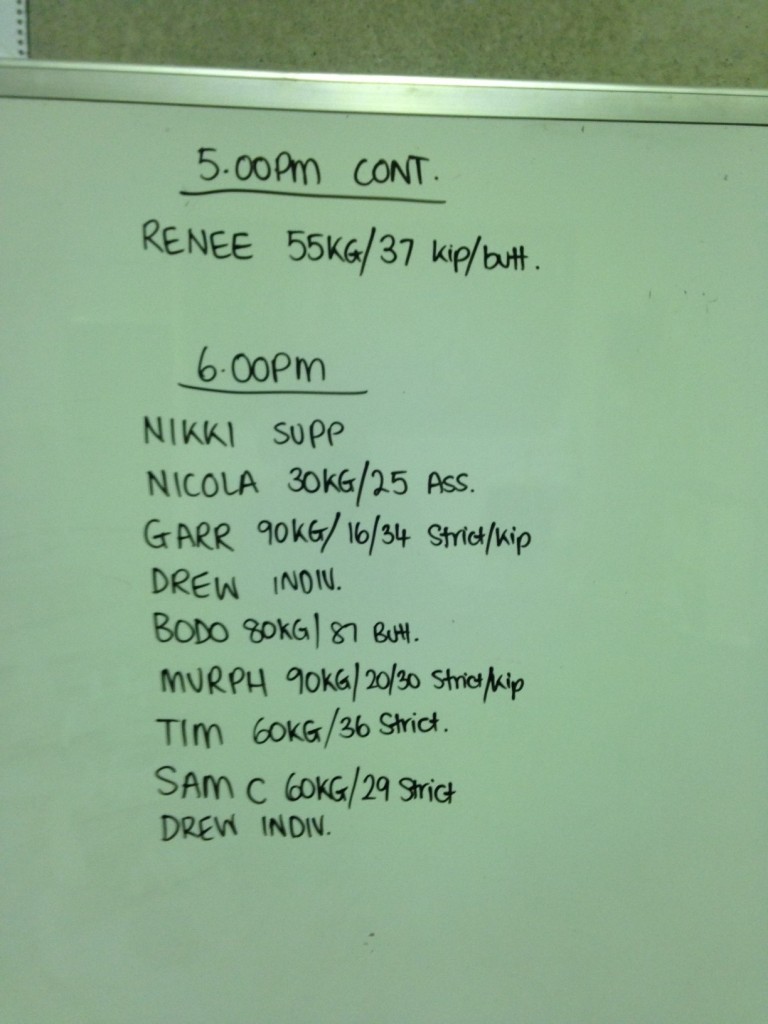 5.00PM CONT.
RENEE 55KG/37 Kip/butt.
6.00PM
NIKKI SUPP
NICOLA 30KG/25 ASS.
GARR 90KG/16/34 Strict/Kip
DREW INDIV.
BODO 80KG/87 Butt.
MURPH 90KG/20/30 Strict/Kip
TIM 60KG/36 Strict.
SAM C 60KG/29 Strict
DREW INDIV.